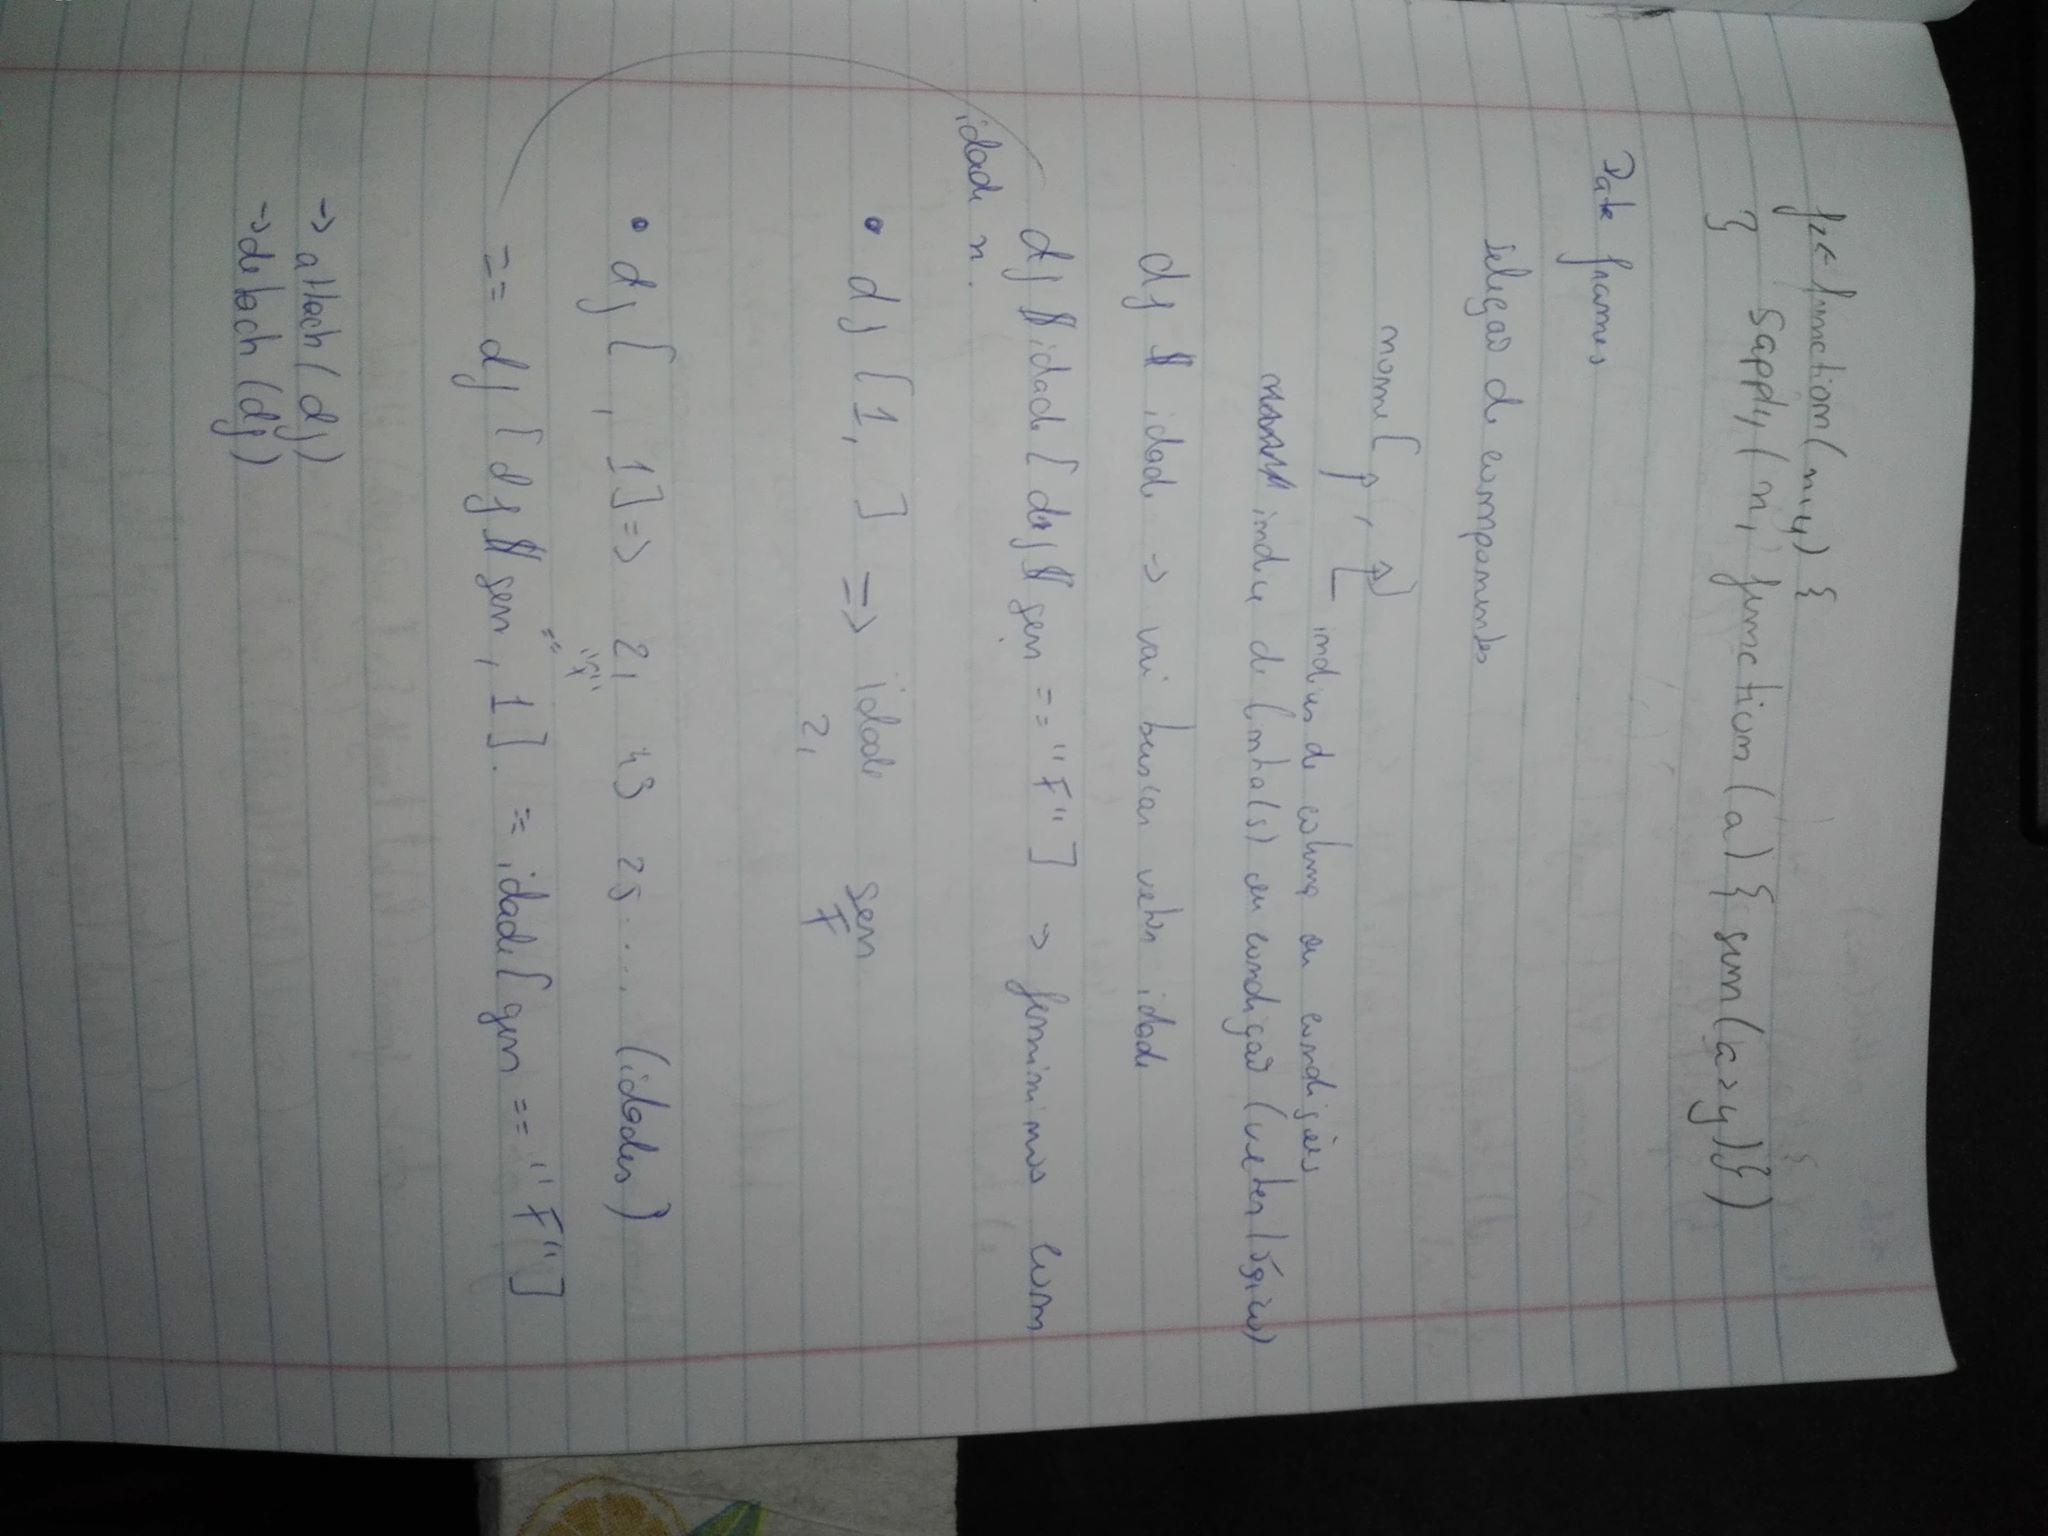 f2 <- function(x,y) {
sapply(x, function(a) { sum(a>y)})
}
Data frames
seleção de componentes
nome[ , ]
indices de coluna ou condições
indice de linha(s) ou condição (vetor lógico)
df $ idade -> vai buscar vetor idade
df $ idade [ df $ gen == "F" ] -> femininos com
idade x.
• df [1, ] => idade sex
21 F
• df [ , 1] => 21 43 25 .... (idades)
== "F"
== df [ df $ gen , 1 ]. = idade [ gen == "F" ]
-> attach ( df )
-> detach ( df )